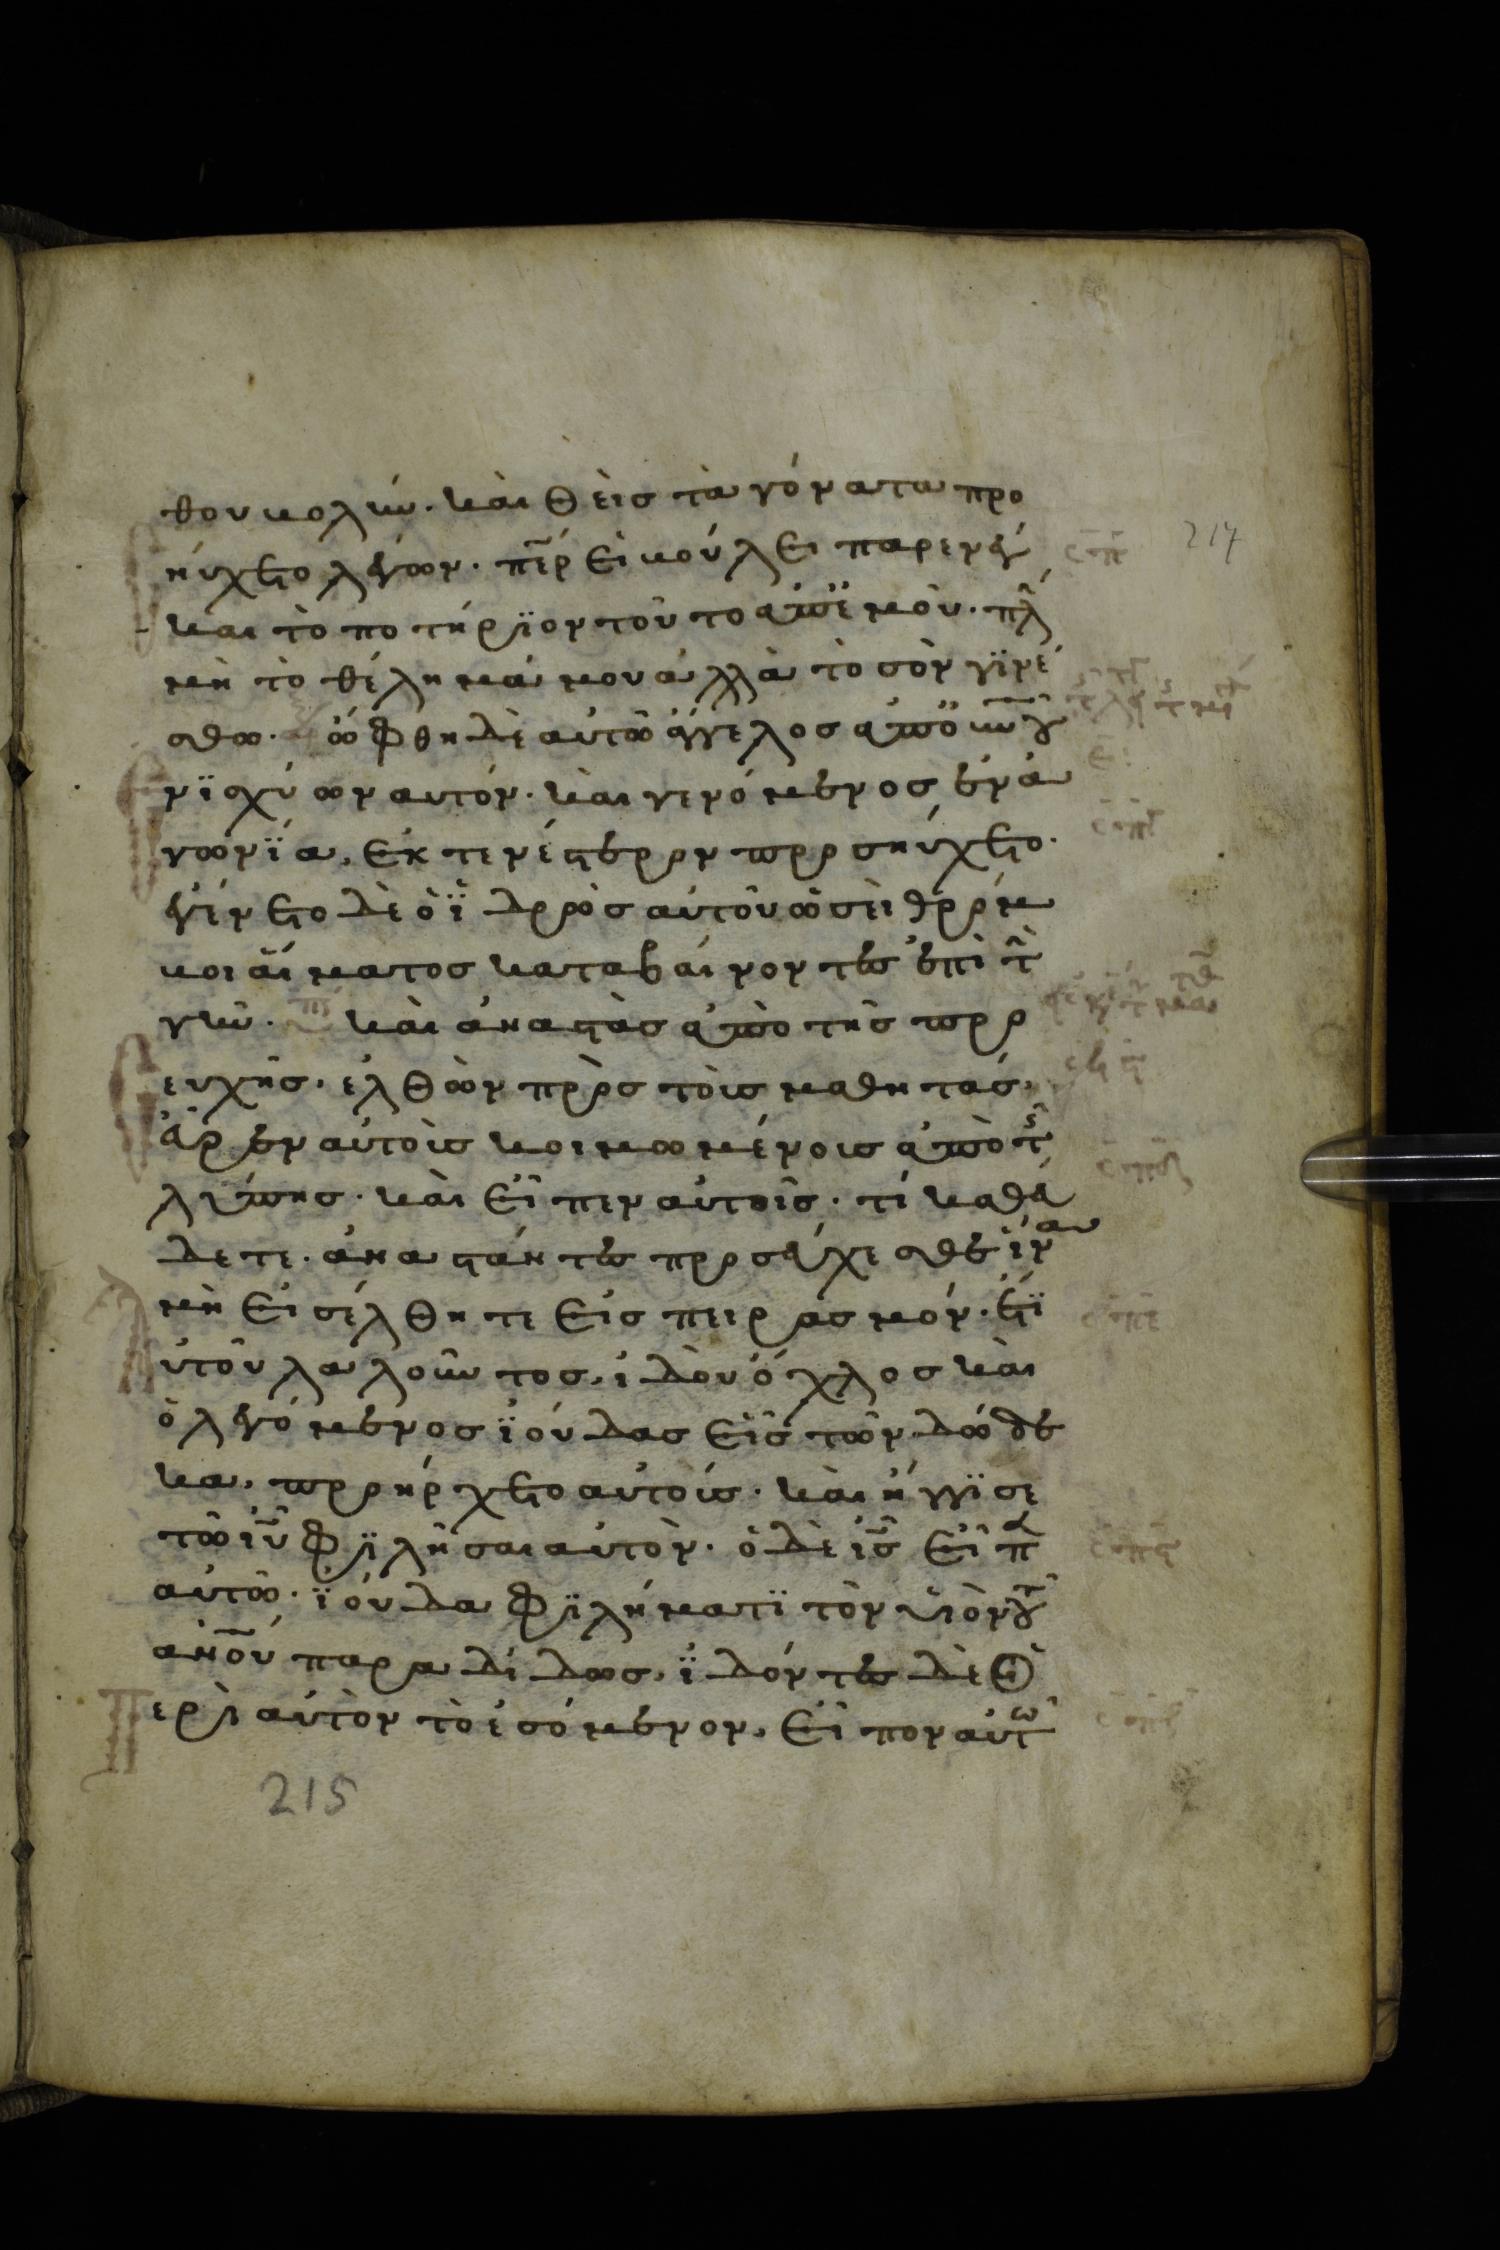 θου βολήν· καὶ θεὶς τὰ γόνατα προ
ηύχετο λέγων· περ εἰ βούλει παρενεγ
και τὸ ποτήριον τοῦτο ἀπ' ἐμοῦ· πλ
μὴ τὸ θέλημά μου ἀλλὰ τὸ σὸν γινέ
σθω· ὤφθη δὲ αὐτῶ ἄγγελος ἀπὸ οὐνοῦ
νϊσχύων αυτόν· καὶ γενόμενος ἐν ἀ
γωνΐα, ἐκτενέστερον προσηύχετο·
ἐγένετο δὲ ὁ ϊδρὸς αὐτοῦ ὡσεὶ θρόμ
βοι αἵματος καταβαίνοντες ἐπὶ τὴ
γῆν· καὶ ἀναστὰς ἀπὸ τῆς προσ
ευχῆς· ἐλθὼν πρὸς τοὺς μαθητάς,
εὗρεν αὐτοὺς κοιμωμένους ἀπὸ τῆς
λύπης· καὶ εἶπεν αὐτοῖς· τί καθεύ
δετε· ἀναστάντες προσεύχεσθε ἵνα
μὴ εἰσέλθητε εἰς πειρασμόν· ἔτϊ
ὐτοῦ λαλοῦντος, ἰδοὺ ὄχλος καὶ
ὁ λεγόμενος ϊούδας εἷς τῶν δώδε
κα, προήρχετο αὐτούς· καὶ ἤγγϊσε
τῶ ιῦ φϊλῆσαι αὐτὸν· ὁ δὲ ις εἶπεν
αὐτῶ· ϊούδα φϊλήματϊ τὸν υἱὸν τοῦ
ανου παραδίδως, ϊδόντες δὲ οἱ
ερὶ αὐτὸν τὸ ἐσόμενον, εἶπον αὐτῶ
217
215